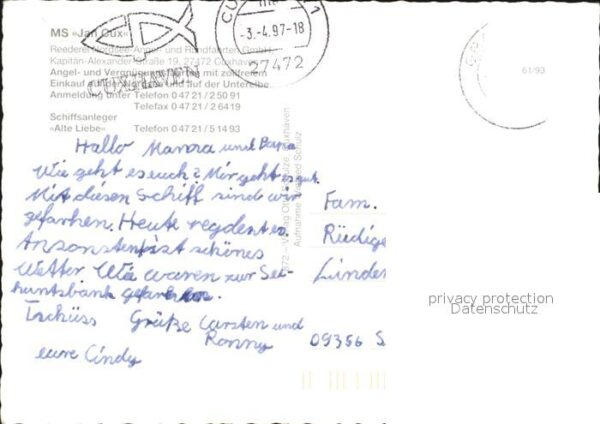 MS »Jan Cux«
Reederei Nordsee-Angel- und Rundfahrten GmbH
Kapitän-Alexander-Straße 19, 27472 Cuxhaven
Angel- und Vergnügungsfahrten mit zollfreiem
Einkauf auf der Nordsee und auf der Unterelbe
Anmeldung unter Telefon 0 47 21 / 2 50 91
Telefax 0 47 21 / 2 64 19
Schiffsanleger
»Alte Liebe« Telefon 0 47 21 / 5 14 93
CUXHAVEN
-3.-4.97-18
27472
61/93
Hallo und
Wie geht es euch? Mir geht es gut.
Mit diesen Schiff sind wir
gefarhen. Heute regdent es.
Ansonsten ist schönes
Wetter. Wia waren zur See-
huntsbank
Tschüss Grüße Carsten und
Ronny
eure Cindy
Fam.
Rüdige
Linden
09356 S
Verlag
Cuxhaven
Aufnahme Schulz
privacy protection
Datenschutz